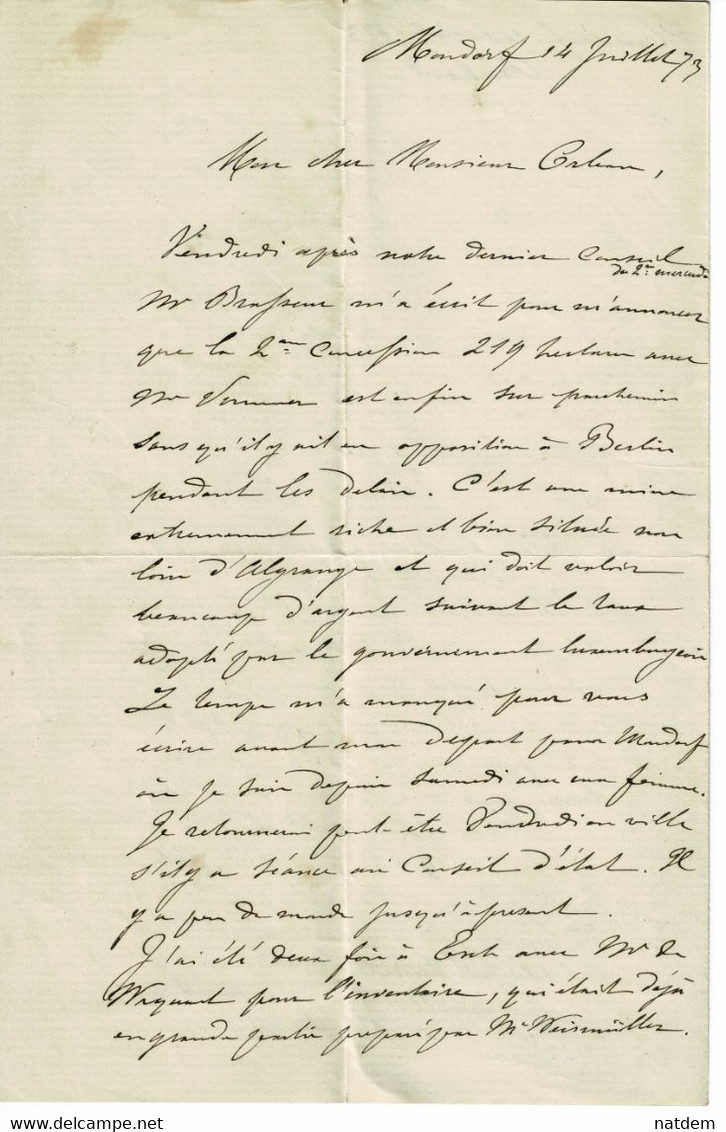 Mondorf 14 Juillet 73
Mon cher Monsieur
Vendredi après notre dernier Conseil
du 2
Mr Brasseur m'a écrit pour m'annoncer
que la 2me Concession 219 hectares avec
Mr est enfin sur parchemin
sans qu'il y ait eu opposition à Berlin
pendant les delais. C'est une mine
extremement riche et bien située non
loin d'Algrange et qui doit valoir
beaucoup d'argent suivant le taux
adopté par le gouvernement luxembourgeois
Le temps m'a manqué pour vous
écrire avant mon depart pour Mondorf
où je suis depuis samedi avec ma femme.
Je retournerai peut-être Vendredi en ville
s'il y a séance au Conseil d'état. Il
y a peu de monde jusqu'à present.
J'ai été deux fois à Esch avec Mr de
Wacquant pour l'inventaire, qui était déjà
en grande partie preparé par Mr Weismüller.
www.delcampe.net
natdem